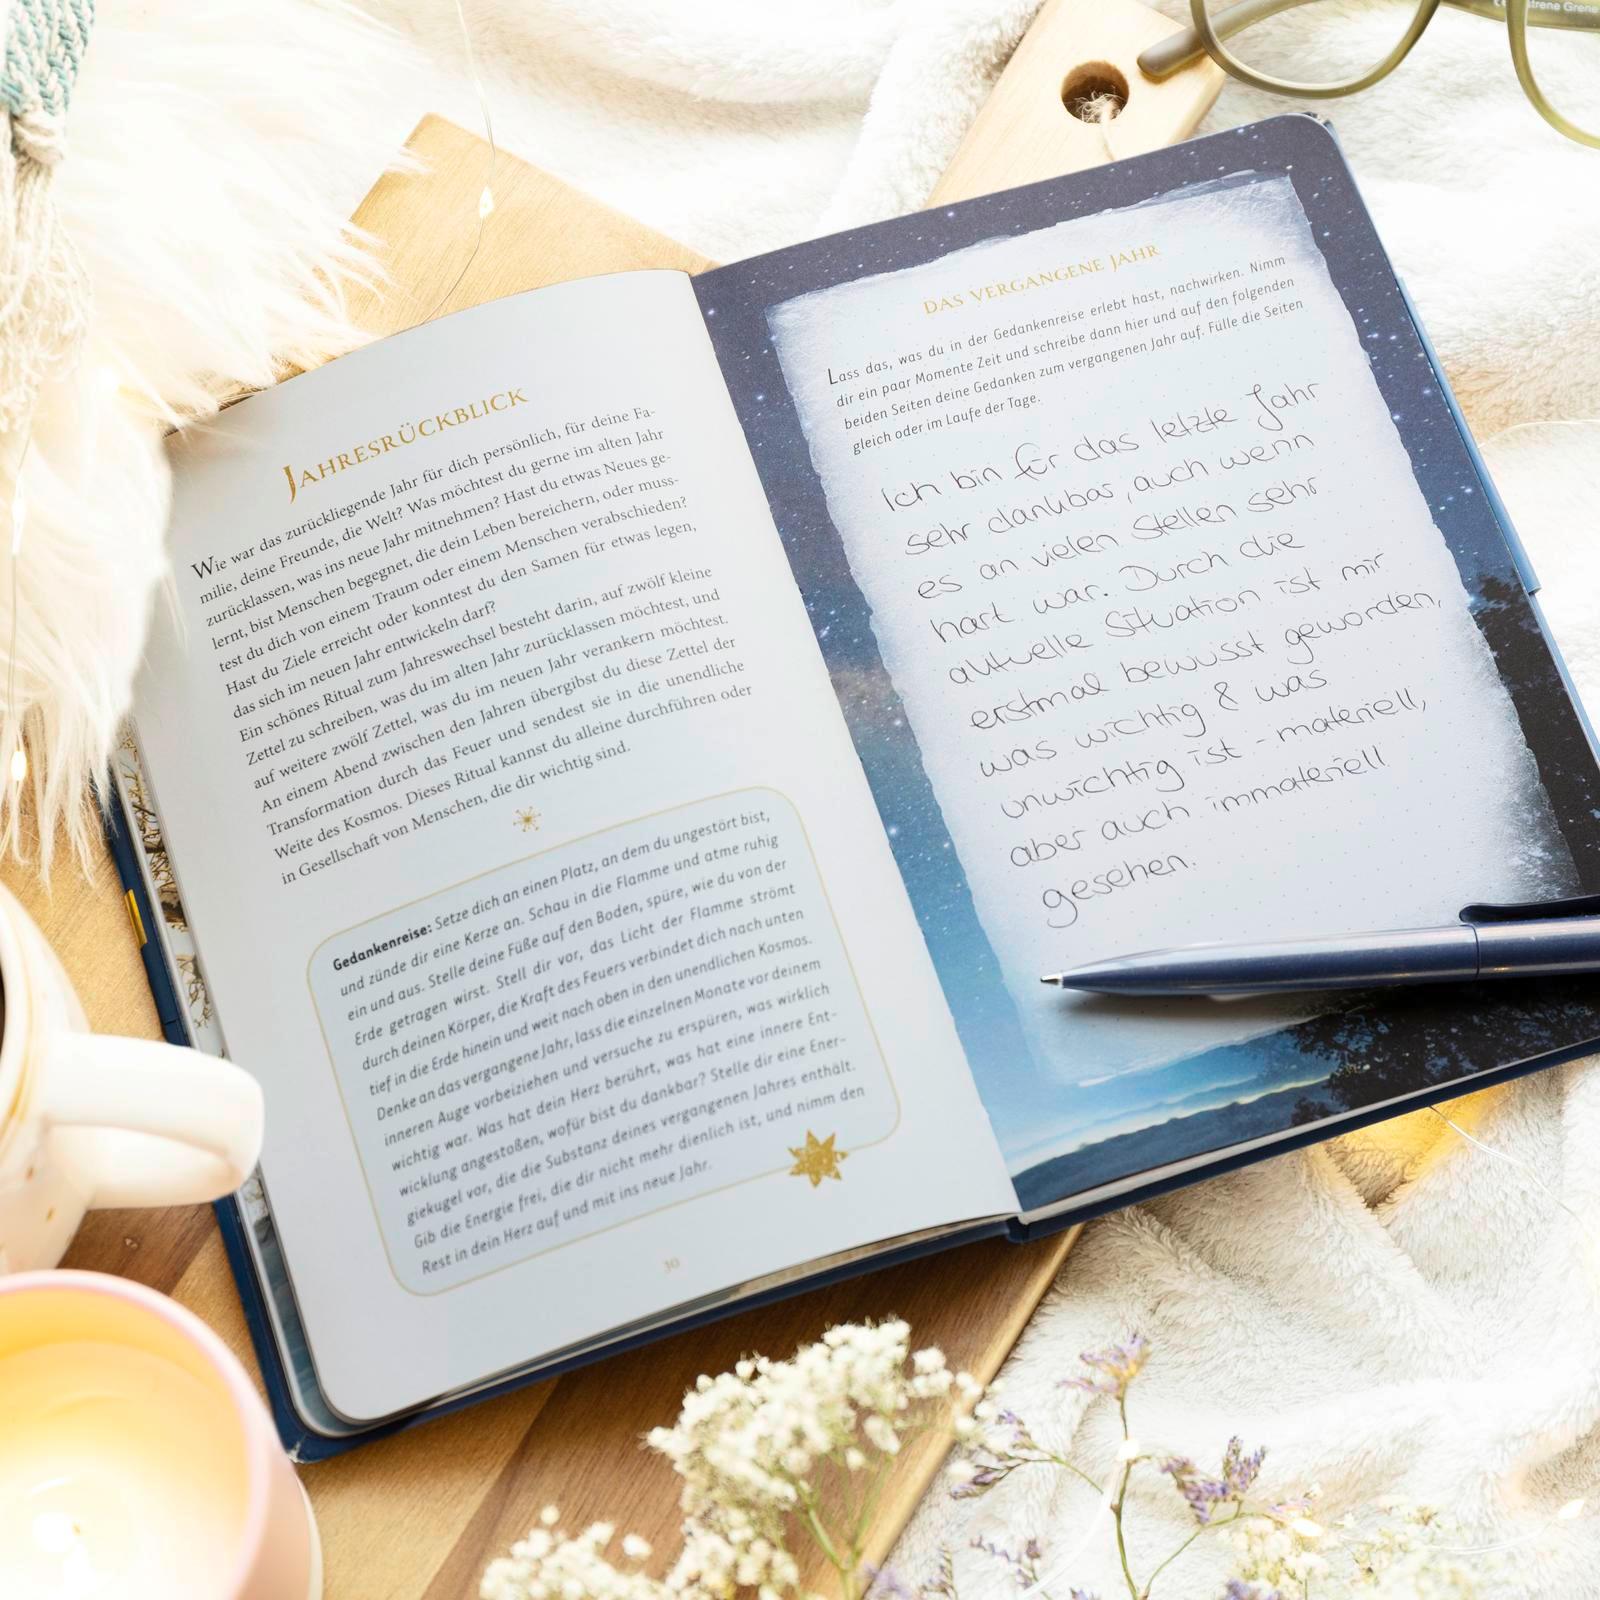 JAHRESRÜCKBLICK
Wie war das zurückliegende Jahr für dich persönlich, für deine Fa-
milie, deine Freunde, die Welt? Was möchtest du gerne im alten Jahr
zurücklassen, was ins neue Jahr mitnehmen? Hast du etwas Neues ge-
lernt, bist Menschen begegnet, die dein Leben bereichern, oder muss-
test du dich von einem Traum oder einem Menschen verabschieden?
Hast du Ziele erreicht oder konntest du den Samen für etwas legen,
das sich im neuen Jahr entwickeln darf?
Ein schönes Ritual zum Jahreswechsel besteht darin, auf zwölf kleine
Zettel zu schreiben, was du im alten Jahr zurücklassen möchtest, und
auf weitere zwölf Zettel, was du im neuen Jahr verankern möchtest.
An einem Abend zwischen den Jahren übergibst du diese Zettel der
Transformation durch das Feuer und sendest sie in die unendliche
Weite des Kosmos. Dieses Ritual kannst du alleine durchführen oder
in Gesellschaft von Menschen, die dir wichtig sind.
Gedankenreise: Setze dich an einen Platz, an dem du ungestört bist,
und zünde dir eine Kerze an. Schau in die Flamme und atme ruhig
ein und aus. Stelle deine Füße auf den Boden, spüre, wie du von der
Erde getragen wirst. Stell dir vor, das Licht der Flamme strömt
durch deinen Körper, die Kraft des Feuers verbindet dich nach unten
tief in die Erde hinein und weit nach oben in den unendlichen Kosmos.
Denke an das vergangene Jahr, lass die einzelnen Monate vor deinem
inneren Auge vorbeiziehen und versuche zu erspüren, was wirklich
wichtig war. Was hat dein Herz berührt, was hat eine innere Ent-
wicklung angestoßen, wofür bist du dankbar? Stelle dir eine Ener-
giekugel vor, die die Substanz deines vergangenen Jahres enthält.
Gib die Energie frei, die dir nicht mehr dienlich ist, und nimm den
Rest in dein Herz auf und mit ins neue Jahr.
30
DAS VERGANGENE JAHR
Lass das, was du in der Gedankenreise erlebt hast, nachwirken. Nimm
dir ein paar Momente Zeit und schreibe dann hier und auf den folgenden
beiden Seiten deine Gedanken zum vergangenen Jahr auf. Fülle die Seiten
gleich oder im Laufe der Tage.
Ich bin für das letzte Jahr
sehr dankbar, auch wenn
es an vielen Stellen sehr
hart war. Durch die
aktuelle Situation ist mir
erstmal bewusst geworden,
was wichtig & was
unwichtig ist - materiell,
aber auch immateriell
gesehen.